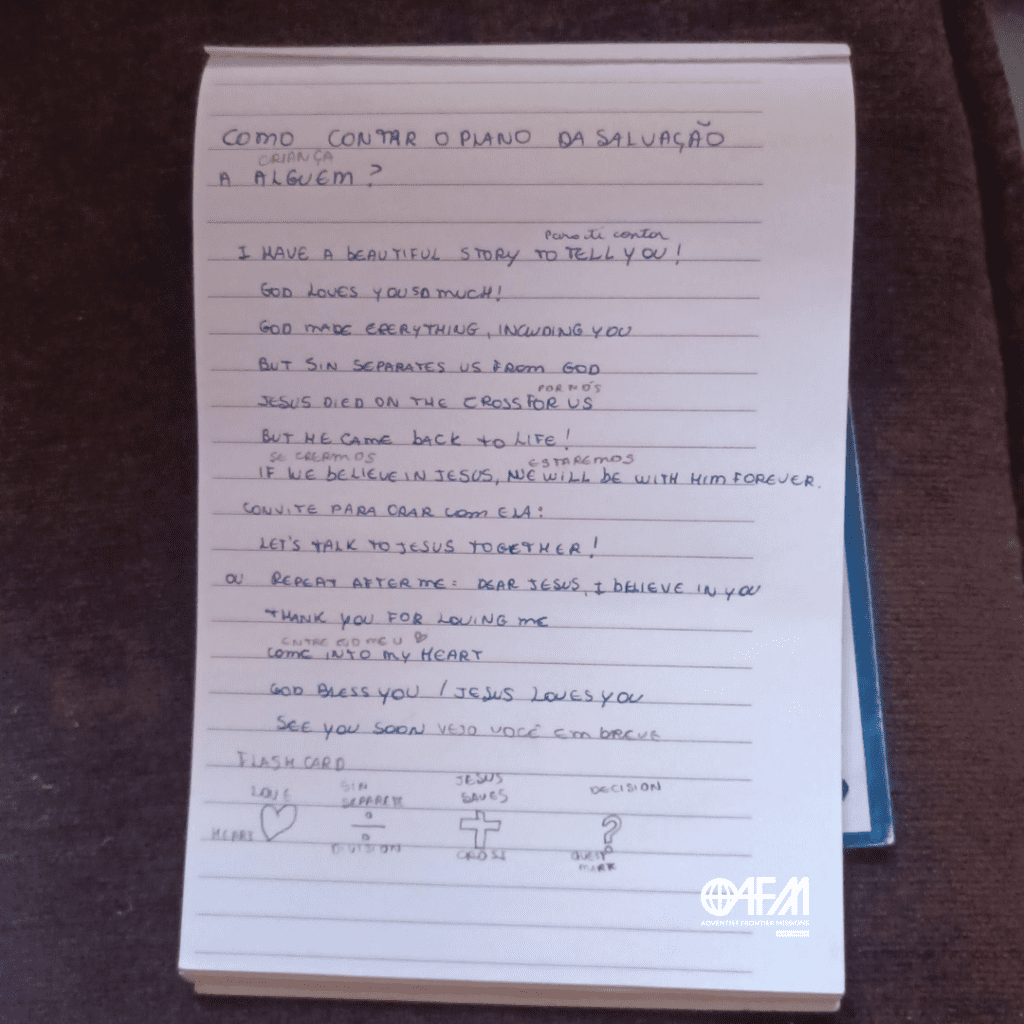 COMO CONTAR O PLANO DA SALVAÇÃO
CRIANÇA
A ALGUEM?
para ti contar
I HAVE A BEAUTIFUL STORY TO TELL YOU!
GOD LOVES YOU SO MUCH!
GOD MADE EVERYTHING, INCLUDING YOU
BUT SIN SEPARATES US FROM GOD
POR NÓS
JESUS DIED ON THE CROSS FOR US
BUT HE CAME BACK TO LIFE!
SE CRERMOS ESTAREMOS
IF WE BELIEVE IN JESUS, WE WILL BE WITH HIM FOREVER.
CONVITE PARA ORAR COM ELA:
LET'S TALK TO JESUS TOGETHER!
OU REPEAT AFTER ME: DEAR JESUS, I BELIEVE IN YOU
THANK YOU FOR LOVING ME
ENTRE NO MEU
COME INTO MY HEART
GOD BLESS YOU / JESUS LOVES YOU
SEE YOU SOON VEJO VOCÊ EM BREVE
FLASH CARD
LOVE SIN SEPARER JESUS SAVES DECISION
HEART DIVISION CROSS QUEST MARK
AFM
ADVENTIST FRONTIER MISSIONS